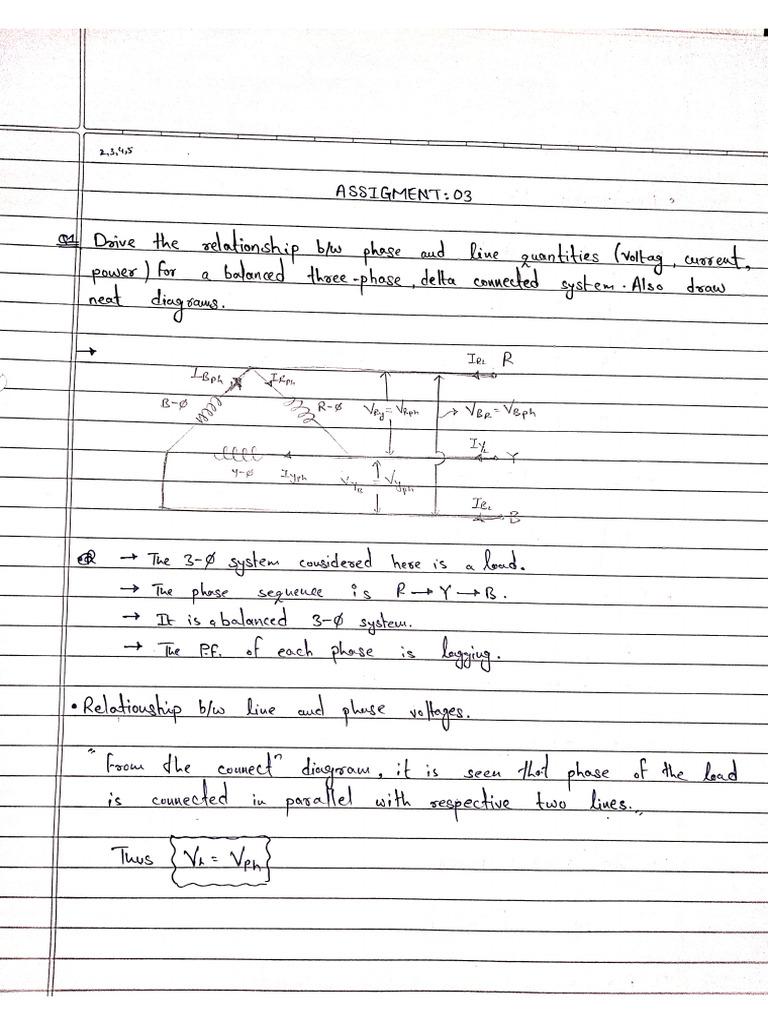 2,3,4,5
ASSIGMENT: 03
Q1 Drive the relationship b/w phase and line quantities (voltag, current,
power) for a balanced three-phase, delta connected system. Also draw
neat diagrams.
→
IRL R
IBph IRph
B-Ø R-Ø VRy = VRph → VBR = VBph
IYL Y
Y-Ø IYph VYB = VYph
IBL B
→ The 3-Ø system considered here is a load.
→ The phase sequence is R → Y → B.
→ It is a balanced 3-Ø system.
→ The P.f. of each phase is lagging.
• Relationship b/w line and phase voltages.
"From the connectⁿ diagram, it is seen that phase of the load
is connected in parallel with respective two lines.,,
Thus VL = Vph